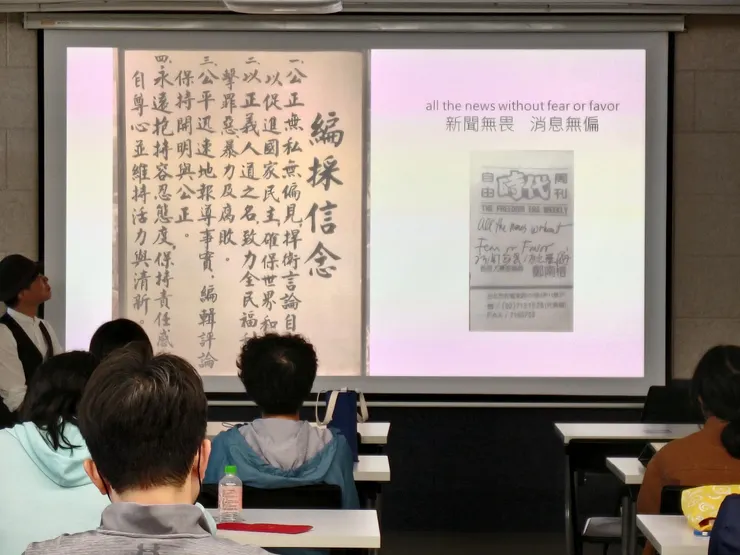 編採信念
一、公正無私無偏見,捍衛言論自
以促進國家民主,確保世界和
二、以正義人道之名,致力全民福
擊罪惡暴力及腐敗。
三、公平迅速地報導事實,編輯評論
保持開明與公正。
四、永遠抱持容忍態度,保持責任感
自尊心並維持活力與清新。
all the news without fear or favor
新聞無畏 消息無偏
自由時代周刊
THE FREEDOM ERA WEEKLY
All the news without
Fear or Favor
鄭南榕